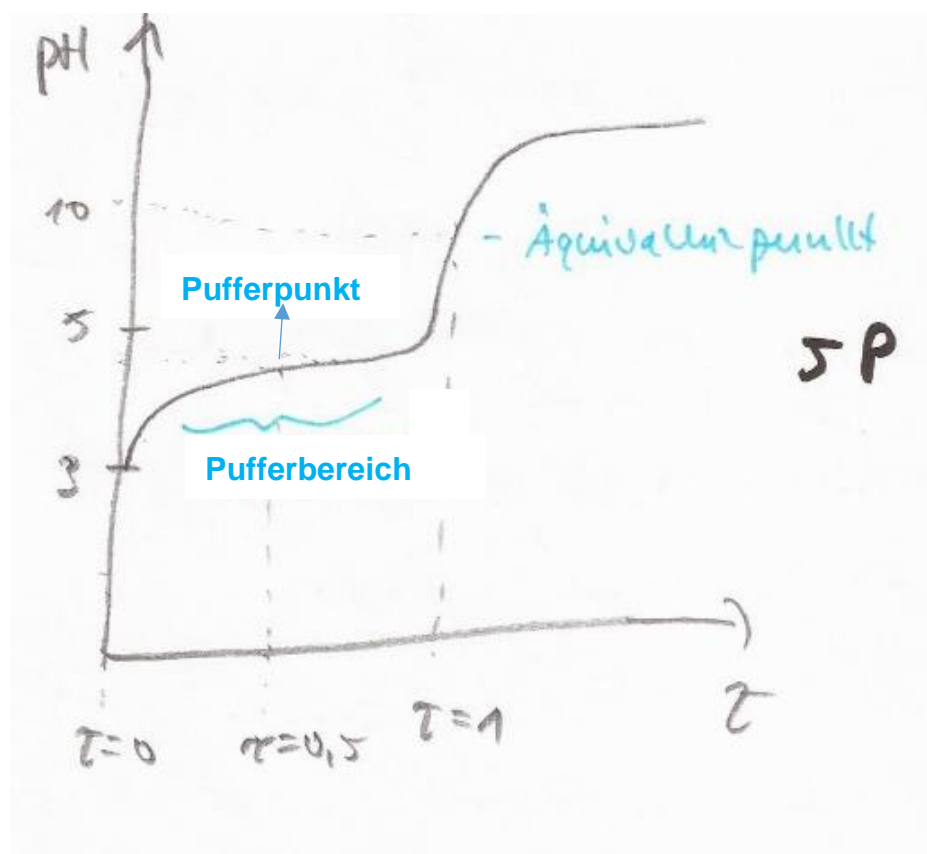 pH
10
- Äquivalenzpunkt
Pufferpunkt
5
5 P
3
Pufferbereich
τ=0
τ=0,5
τ=1
τ